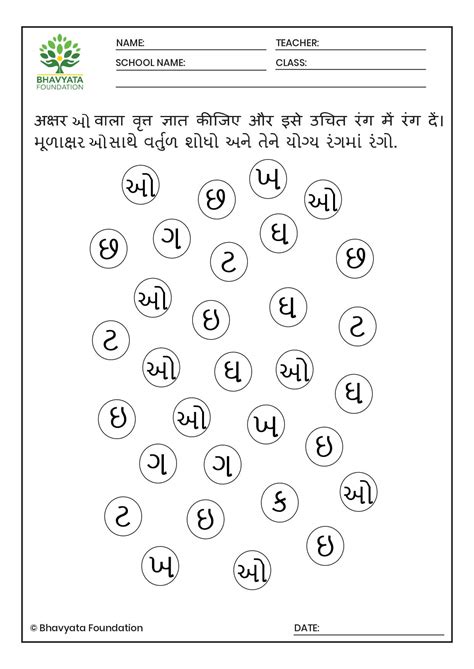 BHAVYATA
FOUNDATION
NAME: TEACHER:
SCHOOL NAME: CLASS:
अक्षर ઓ वाला वृत्त ज्ञात कीजिए और इसे उचित रंग में रंग दें।
મૂળાક્ષર ઓ સાથે વર્તુળ શોધો અને તેને યોગ્ય રંગમાં રંગો.
ઓ છ ખ ઓ
છ ગ ટ ઘ છ
ઓ ઇ ઘ ટ
ટ ઓ ઘ ઓ ઘ
ઇ ઓ ખ ઇ
ગ ગ ઓ
ટ ઇ ક ઇ
ખ ઓ
© Bhavyata Foundation DATE: